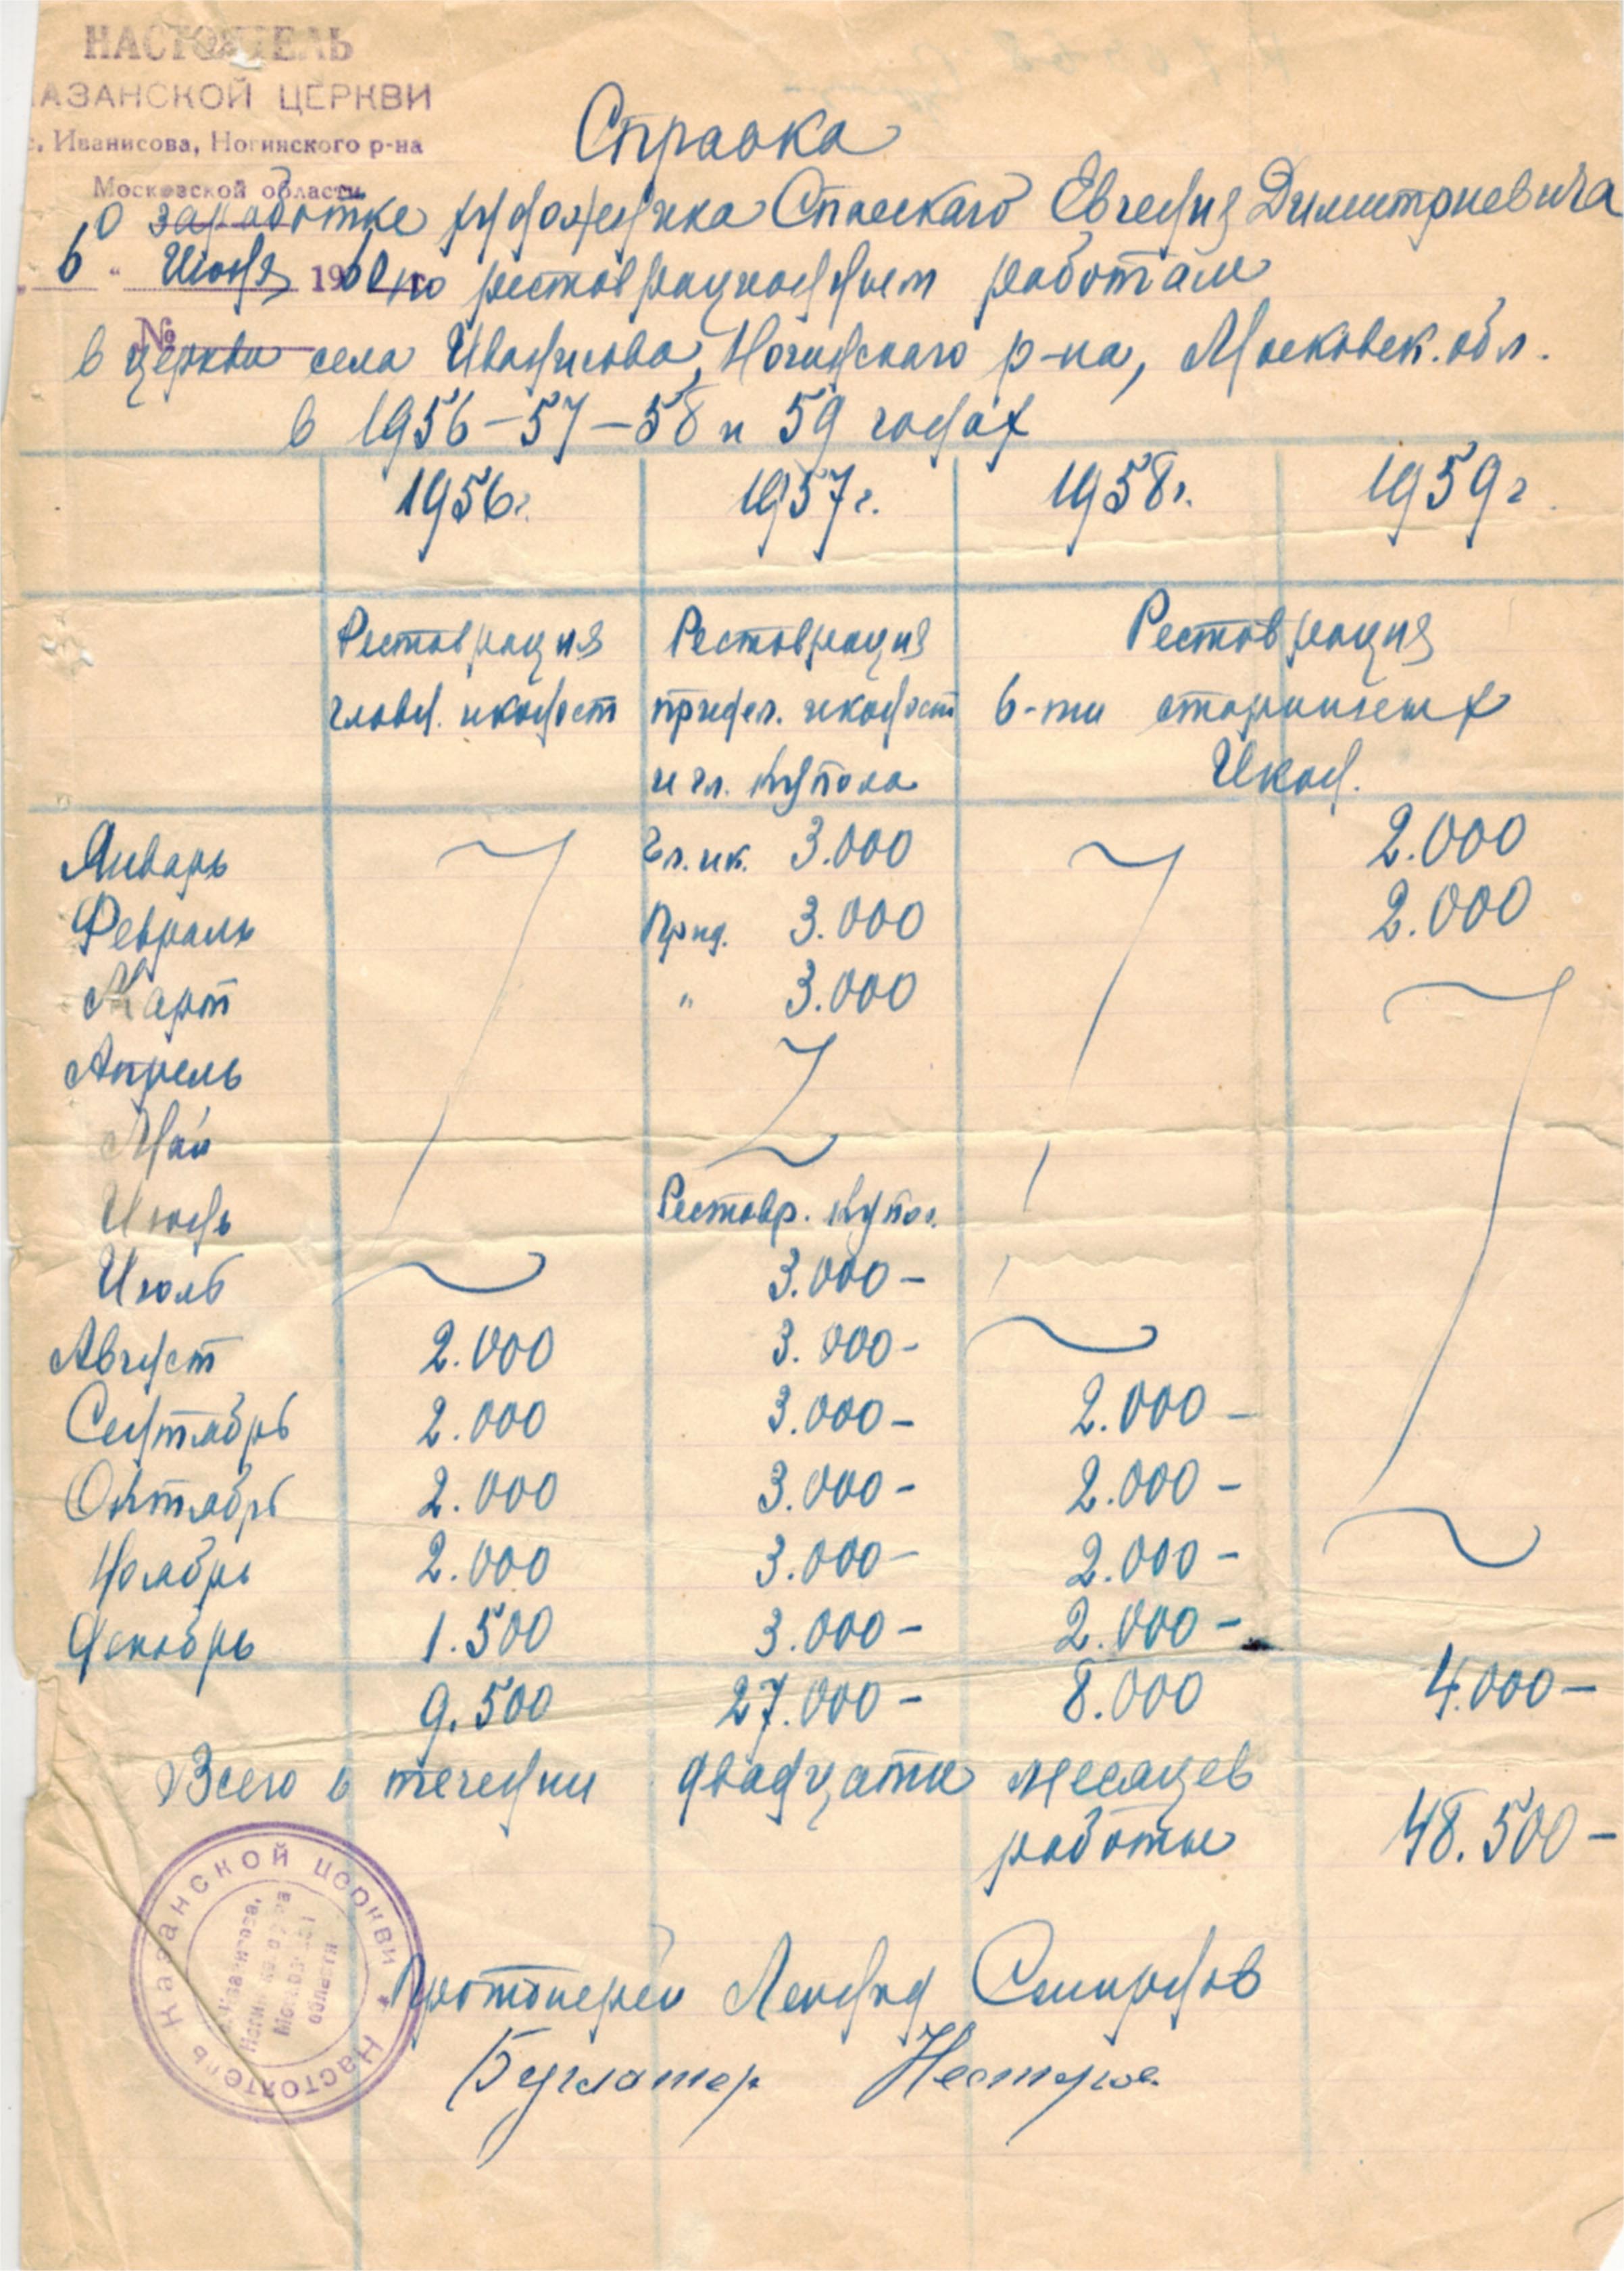 НАСТОЯТЕЛЬ
КАЗАНСКОЙ ЦЕРКВИ
с. Иванисова, Ногинского р-на
Московской области
Справка
о заработке художника Спасскаго Евгения Димитриевича
„6" Июня 1960 по реставрационным работам
№
в церкви села Иванисова, Ногинскаго р-на, Московск. обл.
в 1956-57-58 и 59 годах
1956г. 1957г. 1958г. 1959г.
Реставрация Реставрация Реставрация
главн. иконост придел. иконост 6-ти старинных
и гл. купола Икон.
Январь Гл. ик. 3.000 2.000
Февраль Прид. 3.000 2.000
Март " 3.000
Апрель
Май
Июнь Реставр. купол.
Июль 3.000-
Август 2.000 3.000-
Сентябрь 2.000 3.000- 2.000-
Октябрь 2.000 3.000- 2.000-
Ноябрь 2.000 3.000- 2.000-
Декабрь 1.500 3.000- 2.000-
9.500 27.000- 8.000 4.000-
Всего в течении двадцати месяцев
работы 48.500-
Протоиерей Леонид Смирнов
Бухгалтер
Настоятель Казанской церкви
с. Иванисова,
Ногинского р-на
Московской
области